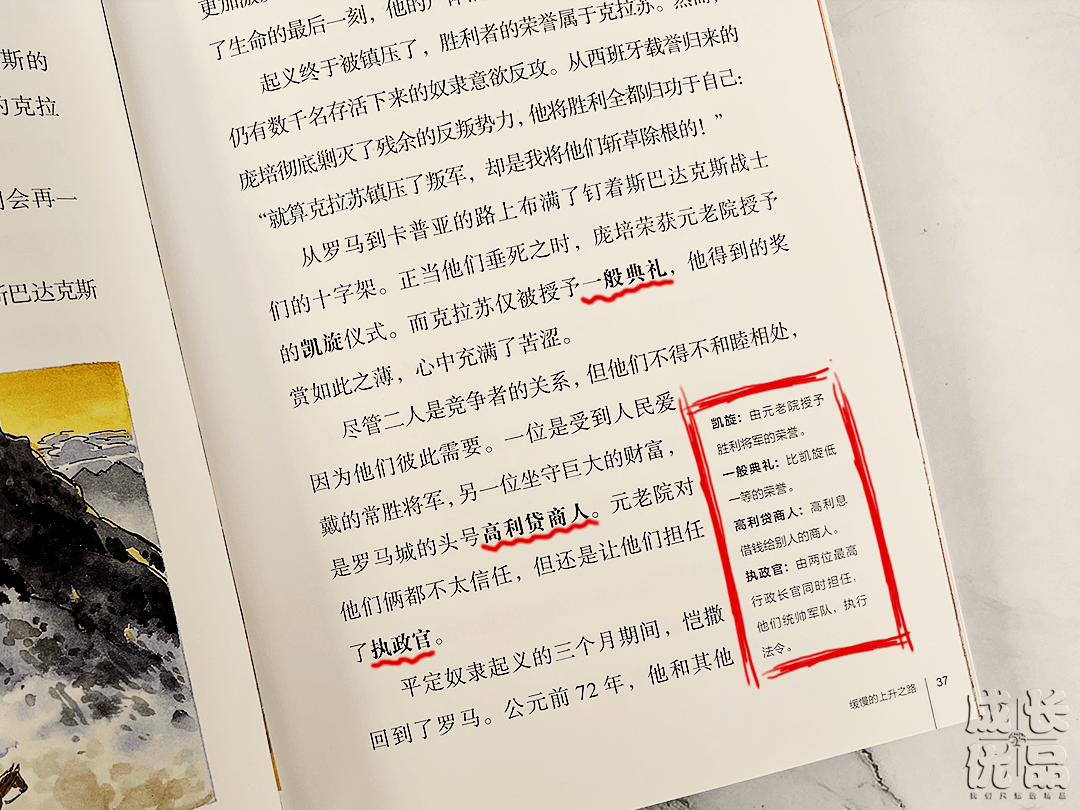 斯的
克拉
会再一
斯巴达克斯
了生命的最后一刻,他的
起义终于被镇压了,胜利者的荣誉属于克拉苏。然而,
仍有数千名存活下来的奴隶意欲反攻。从西班牙载誉归来的
庞培彻底剿灭了残余的反叛势力,他将胜利全都归功于自己:
“就算克拉苏镇压了叛军,却是我将他们斩草除根的!”
从罗马到卡普亚的路上布满了钉着斯巴达克斯战士
们的十字架。正当他们垂死之时,庞培荣获元老院授予
的凯旋仪式。而克拉苏仅被授予一般典礼,他得到的奖
赏如此之薄,心中充满了苦涩。
尽管二人是竞争者的关系,但他们不得不和睦相处,
因为他们彼此需要。一位是受到人民爱
戴的常胜将军,另一位坐守巨大的财富,
是罗马城的头号高利贷商人。元老院对
他们俩都不太信任,但还是让他们担任
了执政官。
平定奴隶起义的三个月期间,恺撒
回到了罗马。公元前72年,他和其他
凯旋:由元老院授予
胜利将军的荣誉。
一般典礼:比凯旋低
一等的荣誉。
高利贷商人:高利息
借钱给别人的商人。
执政官:由两位最高
行政长官同时担任,
他们统帅军队,执行
法令。
缓慢的上升之路 37
成长
优品